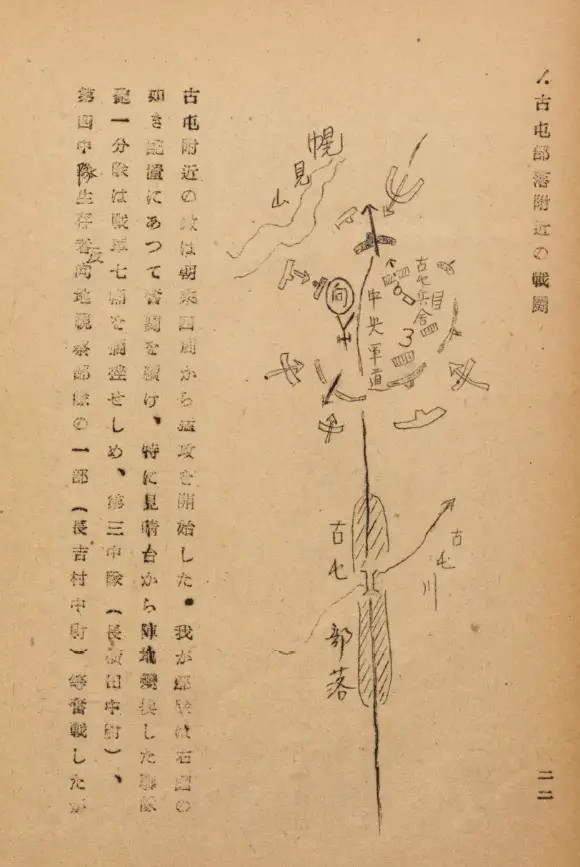 八、古屯部落附近の戦闘
幌見山
古屯兵舎
中央軍道
向
3
古屯川
古屯
部落
古屯附近の敵は朝来四周から猛攻を開始した。我が部隊は右図の
如き配置にあつて奮闘を續け、特に見晴台から陣地変換した聯隊
砲一分隊は戦車七輛を擱挫せしめ、第三中隊(長濱田中尉)、
第四中隊生存者及向地視察部隊の一部(長吉村中尉)等奮戦したが
二二